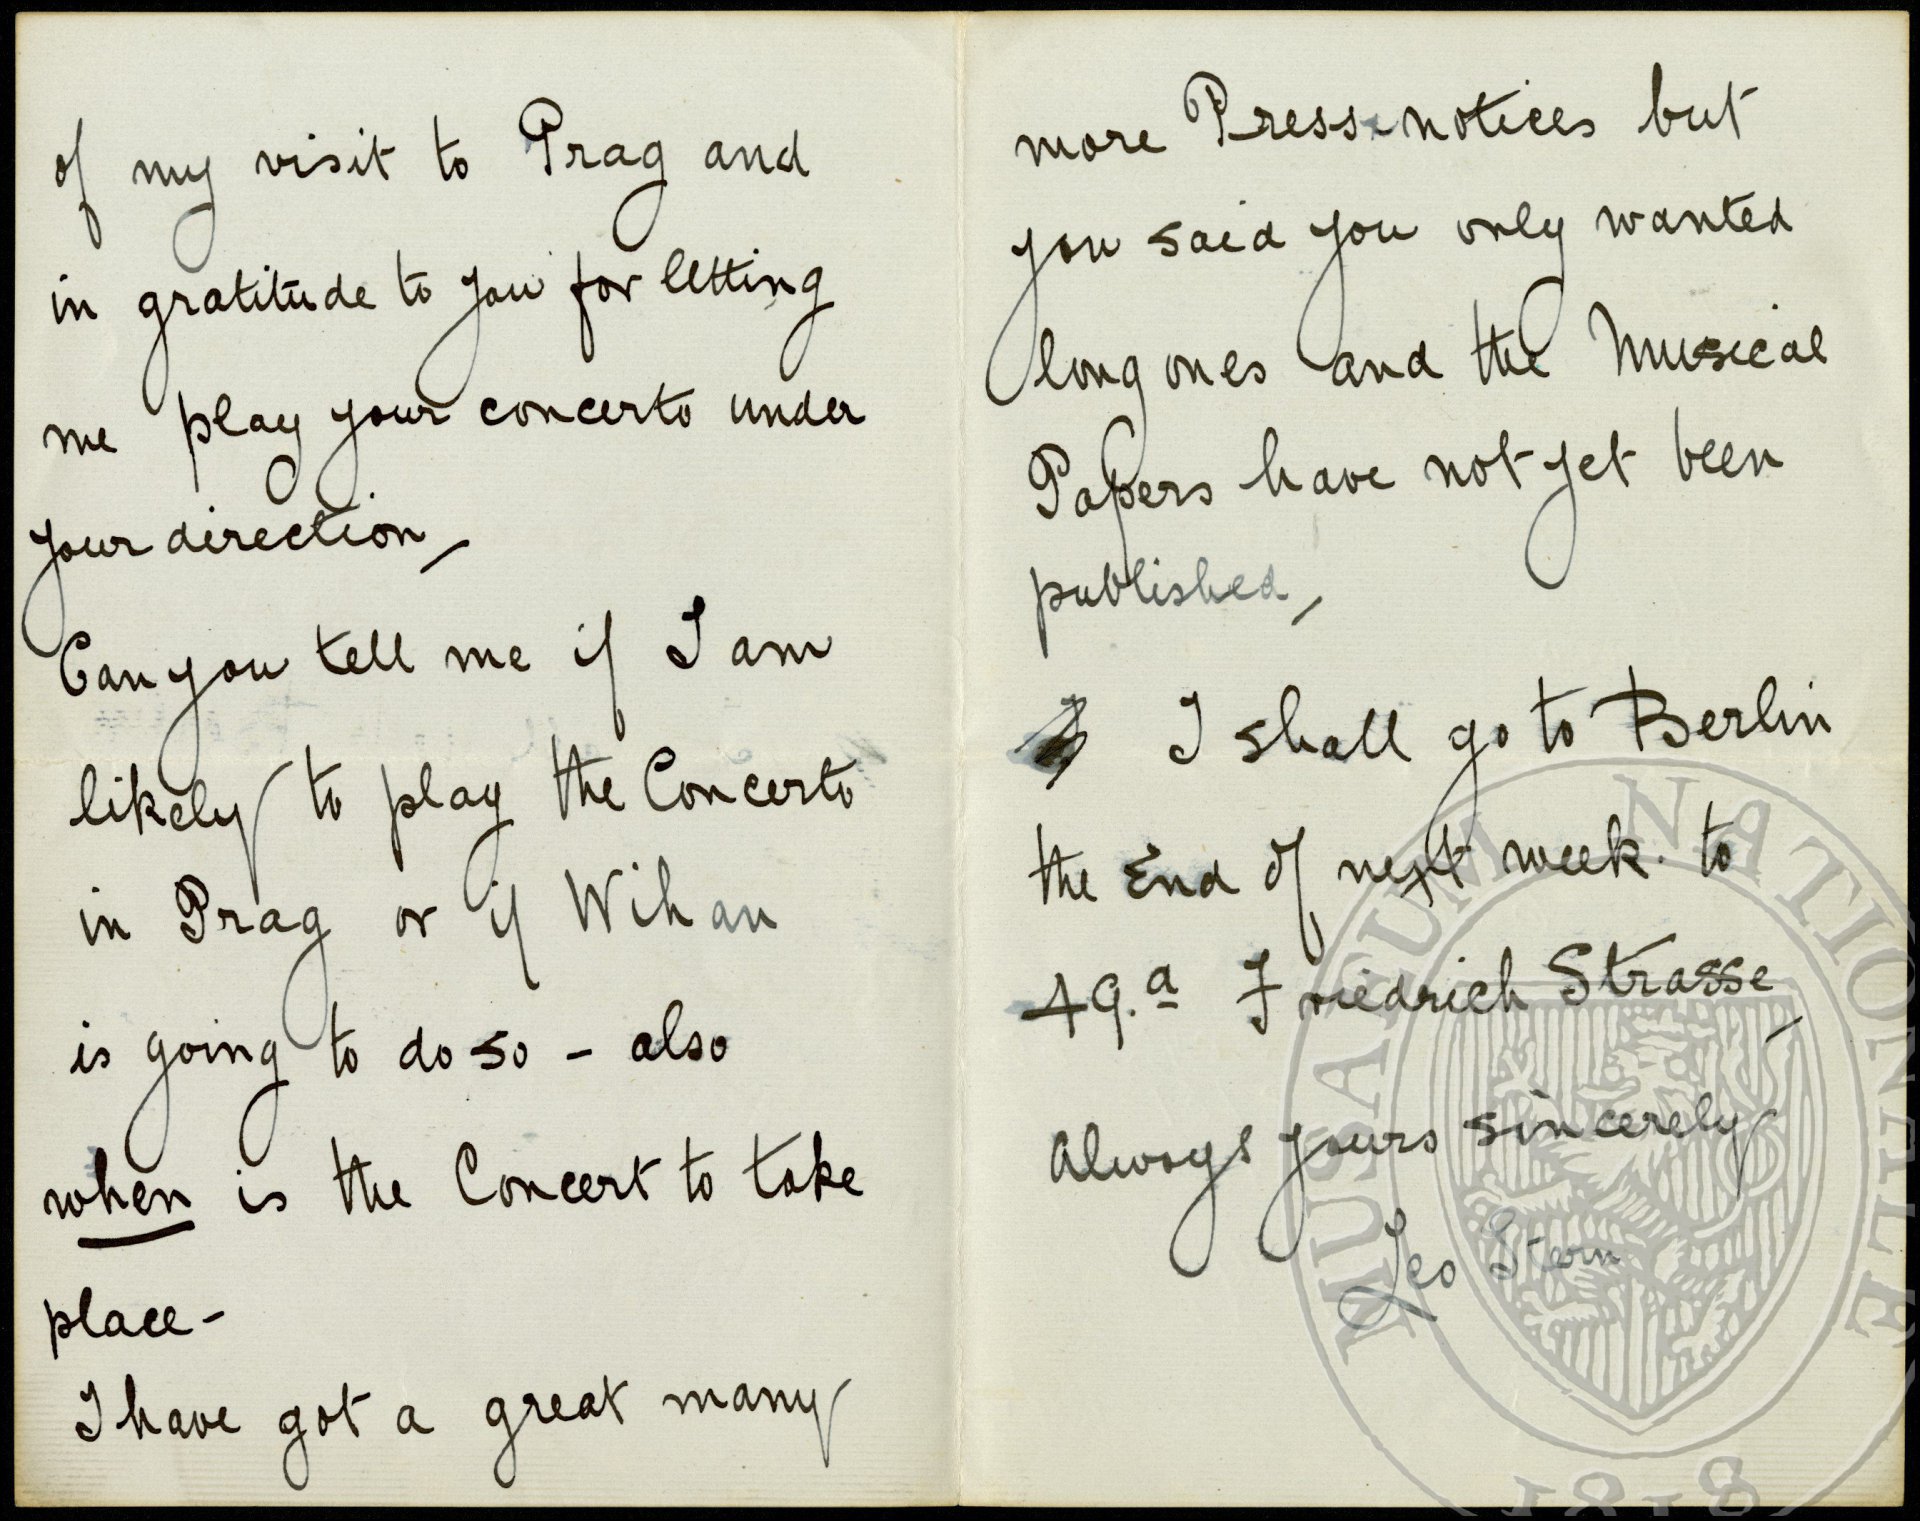 of my visit to Prag and
in gratitude to you for letting
me play your concerto under
your direction_
Can you tell me if I am
likely to play the Concerto
in Prag or if Wihan
is going to do so - also
when is the Concert to take
place -
I have got a great many
more Press-notices but
you said you only wanted
long ones and the Musical
Papers have not yet been
published_
I shall go to Berlin
the End of next week. to
49.a Friedrich Strasse_
Always yours sincerely
Leo Stern
MUSAEUM NATIONALE
1818